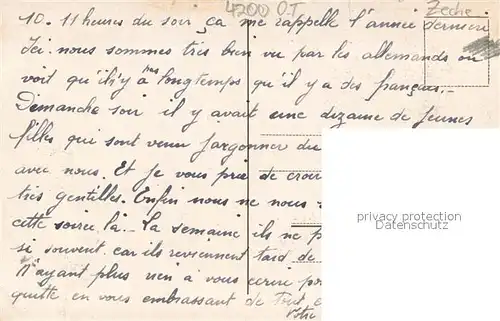 4200 O.T Zeche
10.11 heures du soir ça me rappelle l'année derniere
Ici nous sommes tres bien vu par les allemands on
voit qu'il i'y a pas longtemps qu'il y a des français.-
Dimanche soir il y avait une dizaine de jeunes
filles qui sont venu jargonner du
avec nous. Et je vous prie de croi
très gentilles. Enfin nous ne nous
cette soirée là. La semaine ils ne p
si souvent car ils reviennent tard de
N'ayant plus rien a vous ecrire
quitte en vous embrassant de Tout
Votre
privacy protection
Datenschutz